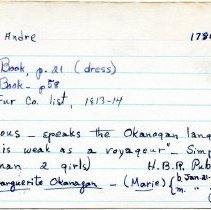 Andre 178
Book, p. 21 (dress)
Book - p58
Fur Co. list, 1813-14
ous - speaks the Okanogan lang
is weak as a voyageur" - Simp
man 2 girls) H.B.R. Pub
Marguerite Okanagan - (Marie) { b. Jan-21-
m. "